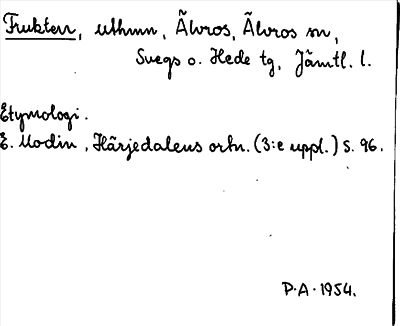 Frukten, uthmn, Älvros, Älvros sn,
Svegs o. Hede tg, Jämtl. l.
Etymologi.
E. Modin, Härjedalens ortn. (3:e uppl.) S. 96.
P.A. 1954.